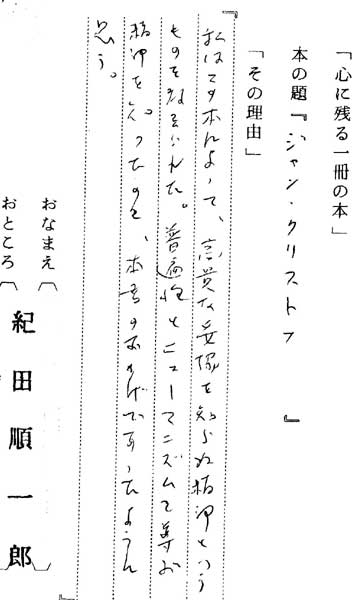 「心に残る一冊の本」
本の題『ジャン・クリストフ』
「その理由」
『私はこの本によって、高貴な妥協を知らぬ精神という
ものを教えられた。普遍性とヒューマニズムを尊ぶ
精神を知ったのも、本書のおかげであったように
思う。』
おなまえ（紀田順一郎）
おところ（